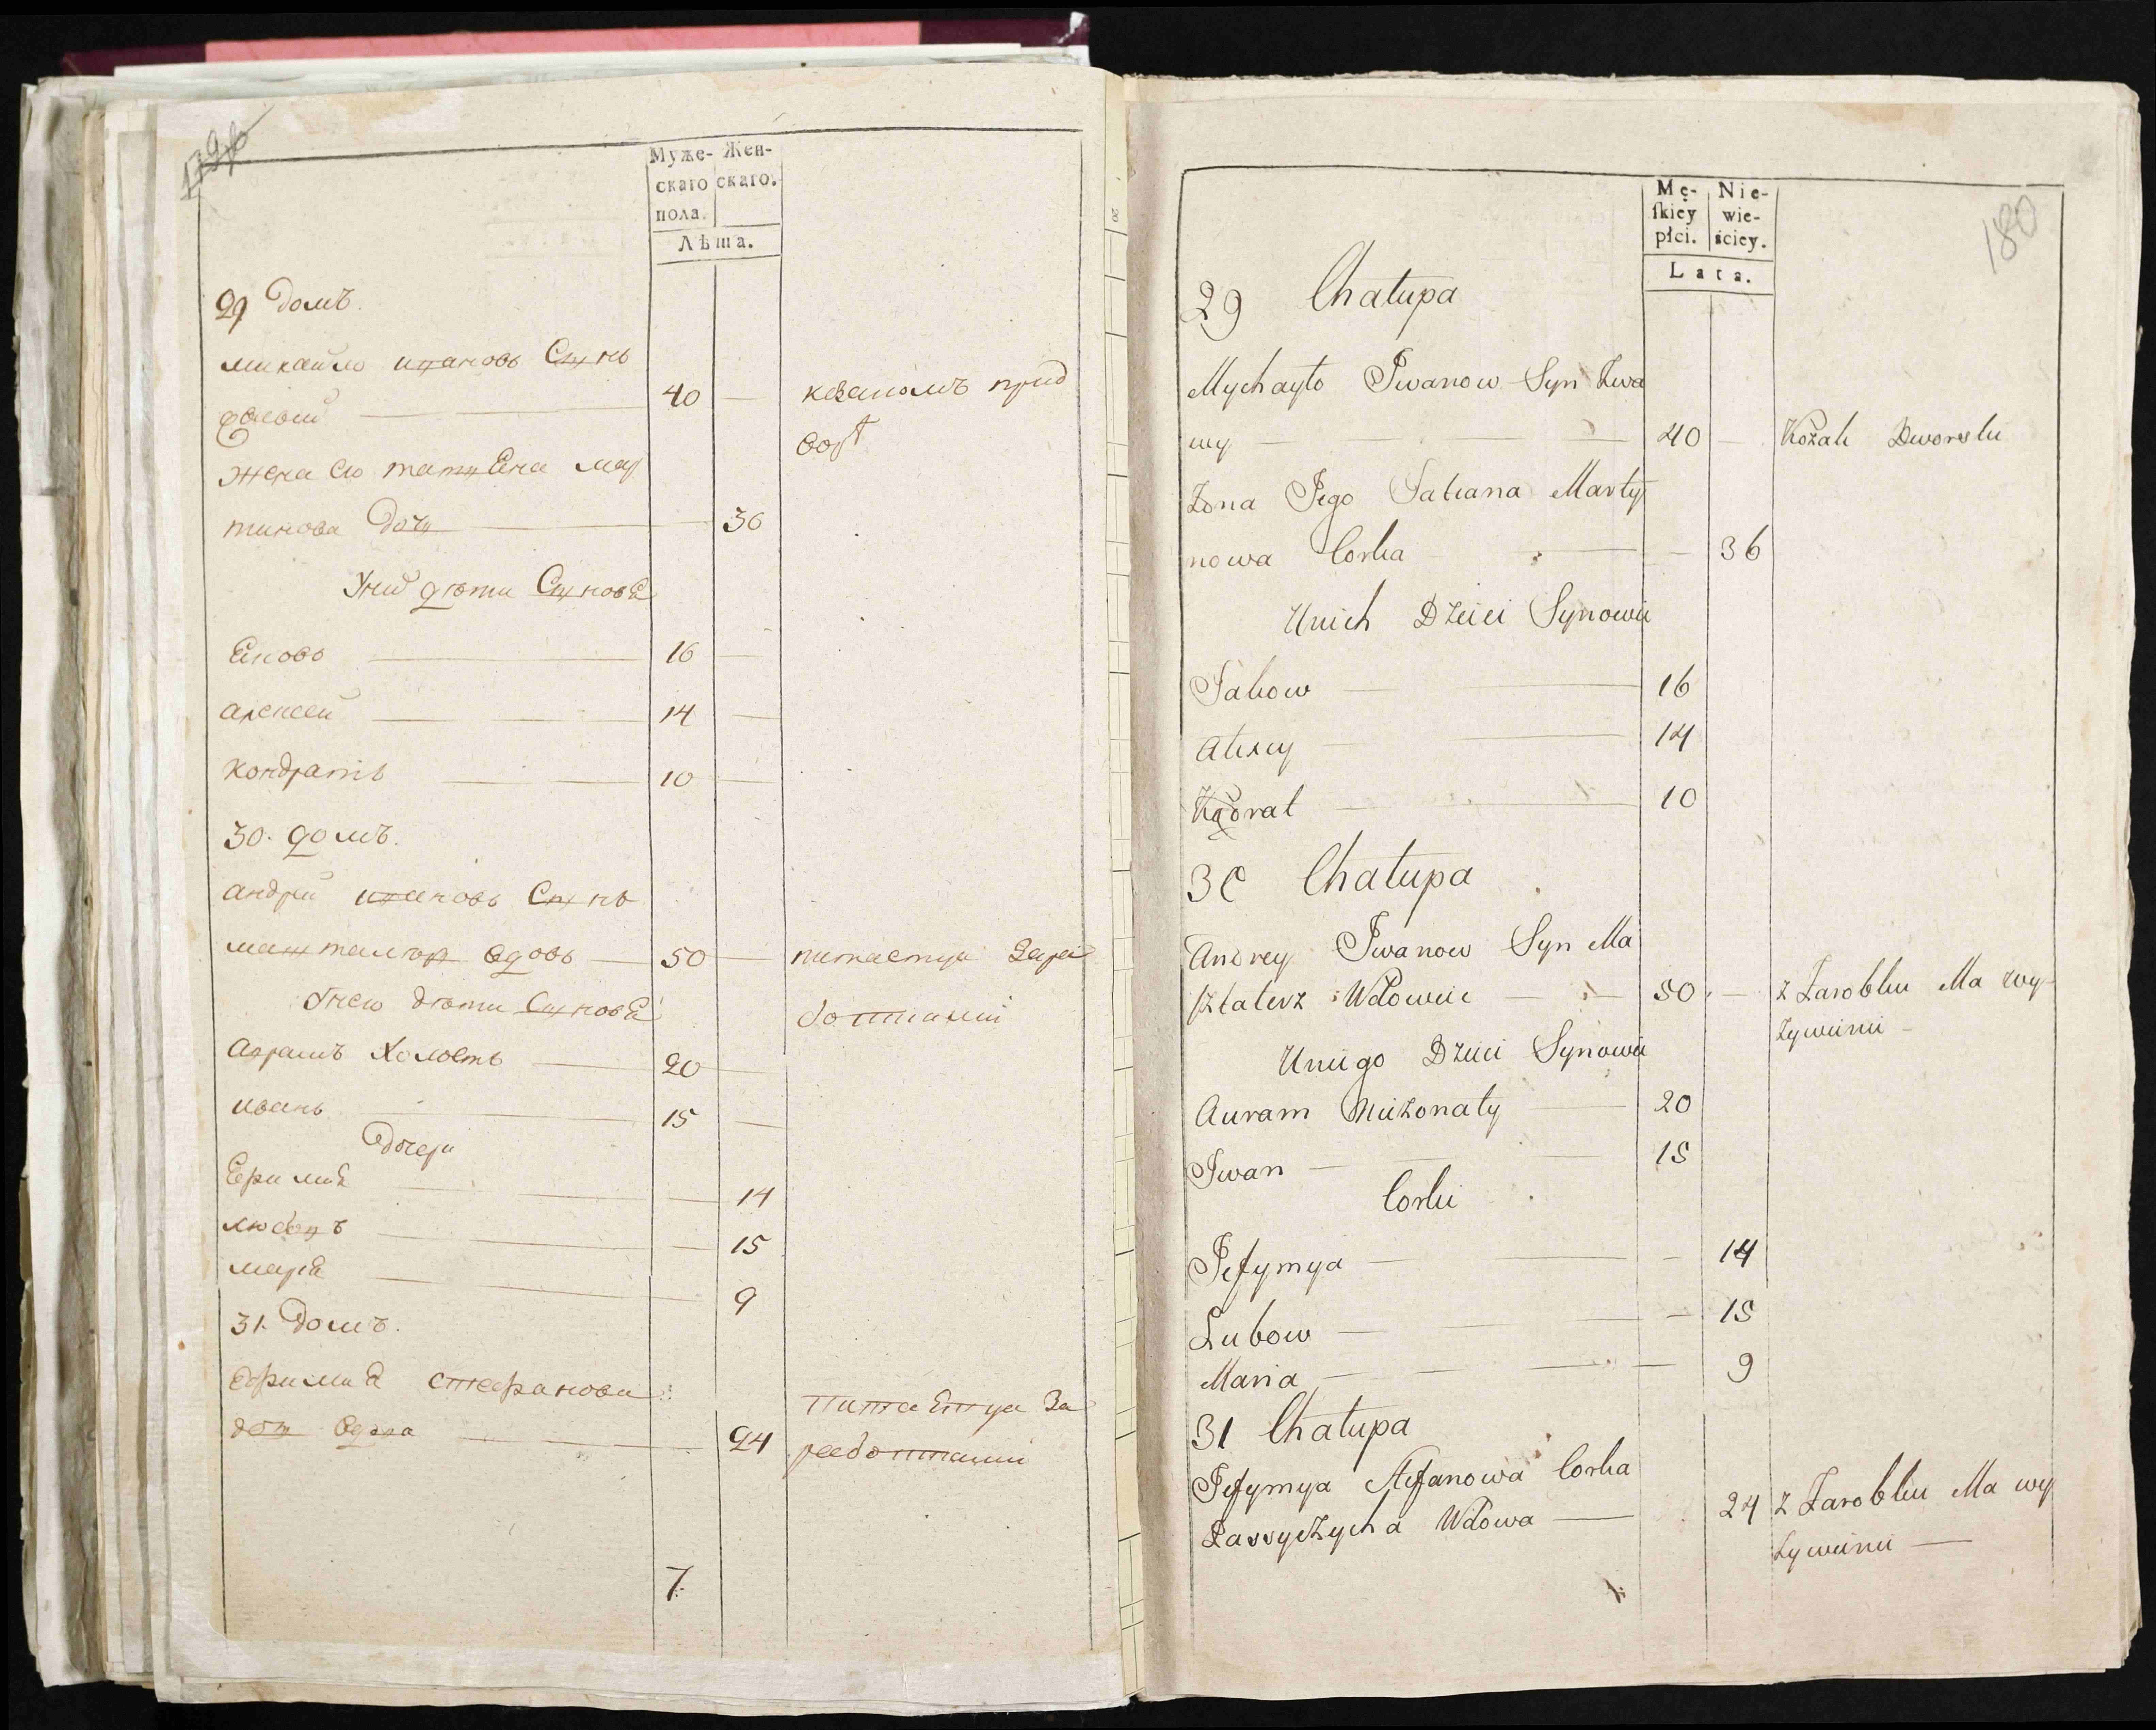 Муже-
скаго
пола.
Жен-
скаго.
Лѣта.
29 домъ.
михайло ивановъ Сынъ
40
казакомъ при д
жена его татиЕна мар
тинова дочь 36
Уних дѣти СыновЕ
Ековъ 16
алексей 14
кондратъ 10
30. домъ.
андрій ивановъ Сынъ
машталѣръ вдовъ 50 питается зара
Унего дѣти СыновЕ
ботками
аврамъ холостъ 20
иванъ 15
дочери
14
любовъ 15
маріЕ 9
31. домъ.
стефанова
питаЕтця за
дочь вдова 24
работками
7
180
Mę-
ſkiey
płci.
Nie-
wie-
ściey.
Lata.
29 Chałupa
Mychayło Jwanow Syn Zwa
wy 40 Kozak Dworski
Żona Jego Tatiana Marty
nowa Corka 36
Unich Dzieci Synowie
Jakow 16
Alexey 14
10
30 Chałupa
Andrey Jwanow Syn Ma
sztalerz Wdowiec 50 z Zarobku Ma wy
żywienie
Uniego Dzieci Synowie
Auram Nieżonaty 20
Jwan 15
Corki
Jefymya 14
Lubow 15
Maria 9
31 Chałupa
Jefymya Stefanowa Corka
Wdowa 24 z Zarobku Ma wy
żywienie